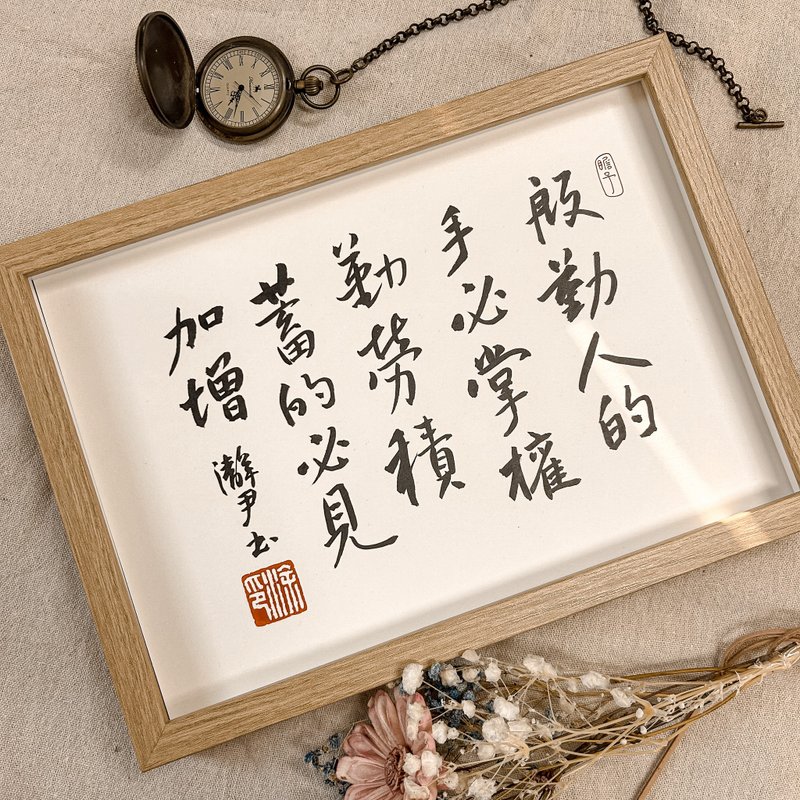 瞻予
殷勤人的
手必掌權
勤勞積
蓄的必見
加增
瀞尹书